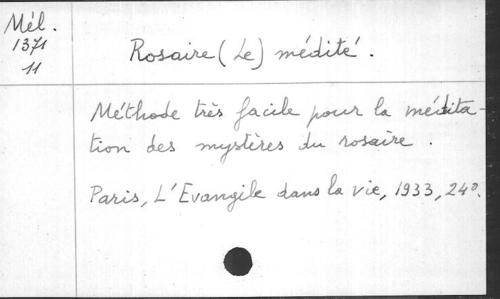 Mél.
1371
11
Rosaire (Le) médité.
Méthode très facile pour la médita-
tion des mystères du rosaire.
Paris, L'Evangile dans la vie, 1933, 24°.